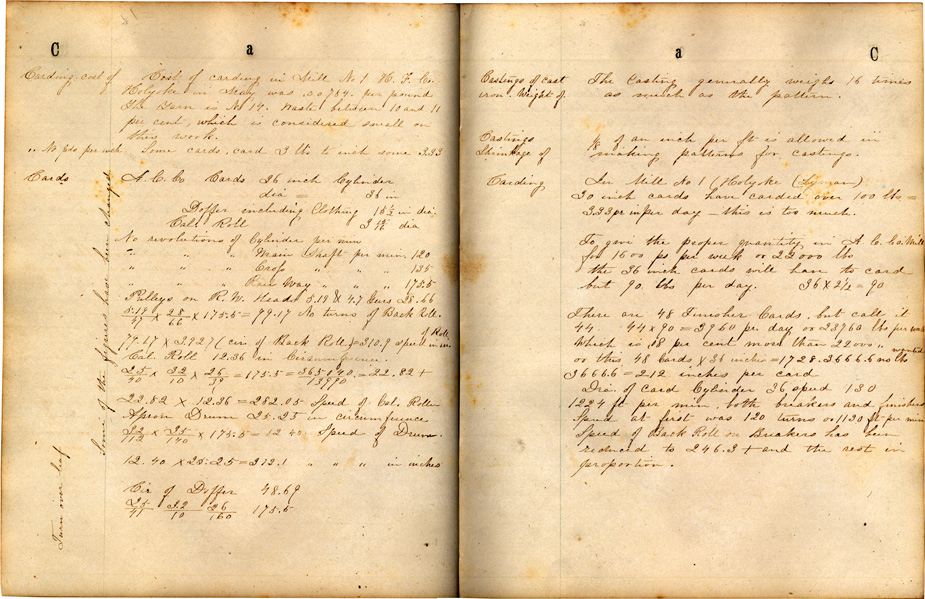 C a
Carding cost of Cost of carding in Mill No 1 H. F. Co.
Holyoke in was .20784 per pound
The Yarn is No 14. Waste between 10 and 11
per cent, which is considered small on
this work.
" No lbs per inch Some cards, card 3 lbs to inch some 3.33
Cards A. C. Co Cards 36 inch Cylinder
dia = 36 in
Doffer including Clothing in dia
Cal. Roll dia
No revolutions of Cylinder per min
" " " Main Shaft per min. 120
" " " Cross " " " 135
" " " " " " 175.5
Pulleys on R. W. Heads 5.19 & 4.7 Gears 28.66
5.19/47 × 28/66 × 175.5 = 79.17 No turns of Back Roll.
of Roll
79.17 × 3.927 (cir of Back Roll) = 310.9 speed in in
Cal. Roll 12.36 in Circumference.
25/40 × 32/10 × 26/ = 175.5 = / = 22.82+
22.82 × 12.36 = 282.05 Speed of Cal. Roller
Apron Drum 25.25 in circumference
× 25/140 × 175.5 = 12.40 Speed of Drum.
12.40 × 25.25 = 313.1 " " " in inches
Cir of Doffer 48.69
175.5
Turn over leaf
Some of the figures have been changed
a C
Castings of Cast
iron. Weight of. The casting generally weighs 16 times
as much as the pattern.
Castings
Shrinkage of 1/8 of an inch per ft is allowed in
making patterns for castings.
Carding In Mill No 1 (Holyoke (Lyman)
30 inch cards have carded over 100 lbs =
3.33 pr in per day – this is too much.
To give the proper quantity in A. C. Co. Mill
for 1600 ps per week or 22000 lbs
the 36 inch cards will have to card
but 90. lbs per day. 36 × 2½ = 90
There are 48 Finisher Cards, but call it
44. 44 × 90 = 3960 per day or 23760 lbs per wk
Which is .08 per cent more than 22000 " wanted
or this 48 Cards × 36 inches = 1728. 3666.6 no lbs
3666.6 = 2.12 inches per card
Dia. of card Cylinder 36, speed 130
1224 ft per min, both breakers and finishers
Speed at first was 120 turns or 1130 ft per min
Speed of Back Roll on Breakers has been
reduced to 246.3 + and the rest in
proportion.